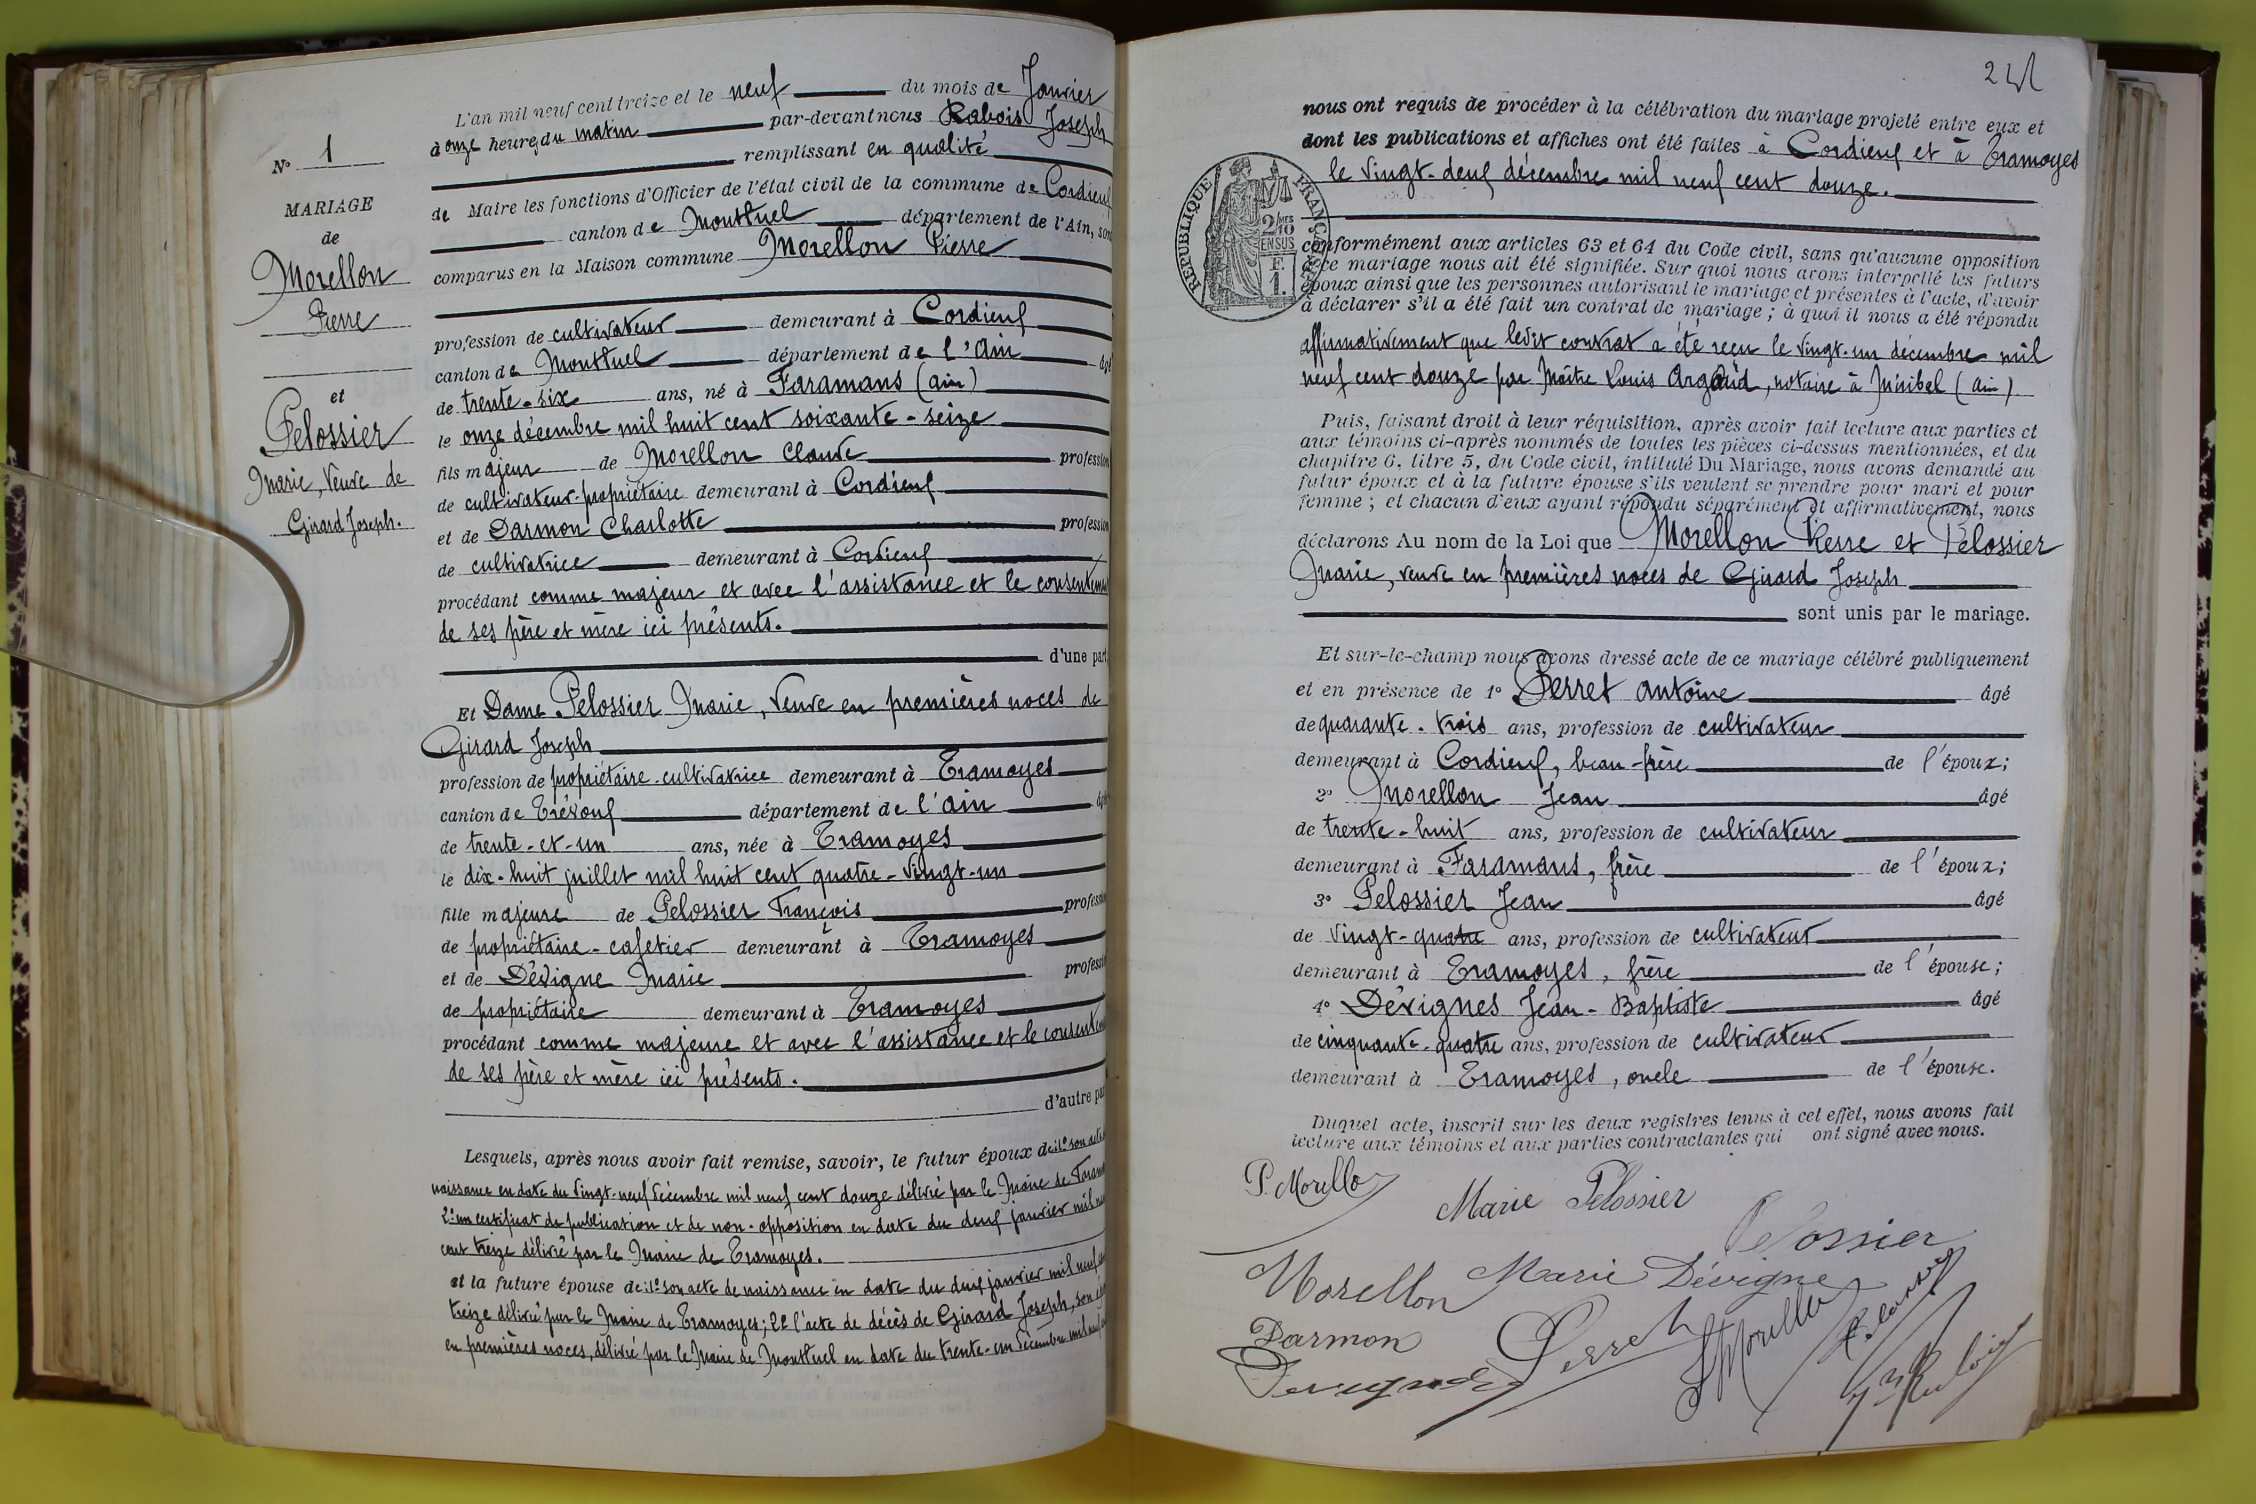 N° 1
MARIAGE
de
Morellon
Pierre
et
Pelossier
Marie, Veuve de
Girard Joseph.
L'an mil neuf cent treize et le neuf du mois de Janvier
à onze heures du matin par-devant nous Rabois Joseph
remplissant en qualité
de Maire les fonctions d'Officier de l'état civil de la commune de Cordieux
canton de Montluel département de l'Ain, sont
comparus en la Maison commune Morellon Pierre
profession de cultivateur demeurant à Cordieux
canton de Montluel département de l'Ain âgé
de trente-six ans, né à Faramans (Ain)
le onze décembre mil huit cent soixante-seize
fils majeur de Morellon Claude profession
de cultivateur-propriétaire demeurant à Cordieux
et de Darmon Charlotte profession
de cultivatrice demeurant à Cordieux
procédant comme majeur et avec l'assistance et le consentement
de ses père et mère ici présents.
d'une part
Et Dame Pelossier Marie, Veuve en premières noces de
Girard Joseph
profession de propriétaire-cultivatrice demeurant à Tramoyes
canton de Trévoux département de l'Ain âgée
de trente-et-un ans, née à Tramoyes
le dix-huit juillet mil huit cent quatre-vingt-un
fille majeure de Pelossier François profession
de propriétaire-cafetier demeurant à Tramoyes
et de Dévigne Marie profession
de propriétaire demeurant à Tramoyes
procédant comme majeure et avec l'assistance et le consentement
de ses père et mère ici présents.
d'autre part
Lesquels, après nous avoir fait remise, savoir, le futur époux de: 1° son acte de
naissance en date du vingt-neuf décembre mil neuf cent douze délivré par le Maire de Faramans
2° un certificat de publication et de non-opposition en date du deux janvier mil neuf
cent treize délivré par le Maire de Tramoyes.
et la future épouse de: 1° son acte de naissance en date du deux janvier mil neuf cent
treize délivré par le Maire de Tramoyes; 2° l'acte de décès de Girard Joseph, son époux
en premières noces, délivré par le Maire de Montluel en date du trente-un décembre mil neuf cent
nous ont requis de procéder à la célébration du mariage projeté entre eux et
dont les publications et affiches ont été faites à Cordieux et à Tramoyes
le vingt-deux décembre mil neuf cent douze.
RÉPUBLIQUE FRANÇAISE
2/10 MES
EN SUS
F.
1.
conformément aux articles 63 et 64 du Code civil, sans qu'aucune opposition
à ce mariage nous ait été signifiée. Sur quoi nous avons interpellé les futurs
époux ainsi que les personnes autorisant le mariage et présentes à l'acte, d'avoir
à déclarer s'il a été fait un contrat de mariage; à quoi il nous a été répondu
affirmativement que ledit contrat a été reçu le vingt-un décembre mil
neuf cent douze par Maître Louis Argoud, notaire à Miribel (Ain)
Puis, faisant droit à leur réquisition, après avoir fait lecture aux parties et
aux témoins ci-après nommés de toutes les pièces ci-dessus mentionnées, et du
chapitre 6, titre 5, du Code civil, intitulé Du Mariage, nous avons demandé au
futur époux et à la future épouse s'ils veulent se prendre pour mari et pour
femme; et chacun d'eux ayant répondu séparément et affirmativement, nous
déclarons Au nom de la Loi que Morellon Pierre et Pelossier
Marie, veuve en premières noces de Girard Joseph
sont unis par le mariage.
Et sur-le-champ nous avons dressé acte de ce mariage célébré publiquement
et en présence de 1° Perret Antoine âgé
de quarante-trois ans, profession de cultivateur
demeurant à Cordieux, beau-frère de l'époux;
2° Morellon Jean âgé
de trente-huit ans, profession de cultivateur
demeurant à Faramans, frère de l'époux;
3° Pelossier Jean âgé
de vingt-quatre ans, profession de cultivateur
demeurant à Tramoyes, frère de l'épouse;
4° Dévignes Jean-Baptiste âgé
de cinquante-quatre ans, profession de cultivateur
demeurant à Tramoyes, oncle de l'épouse.
Duquel acte, inscrit sur les deux registres tenus à cet effet, nous avons fait
lecture aux témoins et aux parties contractantes qui ont signé avec nous.
P. Morellon
Marie Pelossier
Pelossier
Morellon Marie Dévigne
Darmon Perret J Morellon